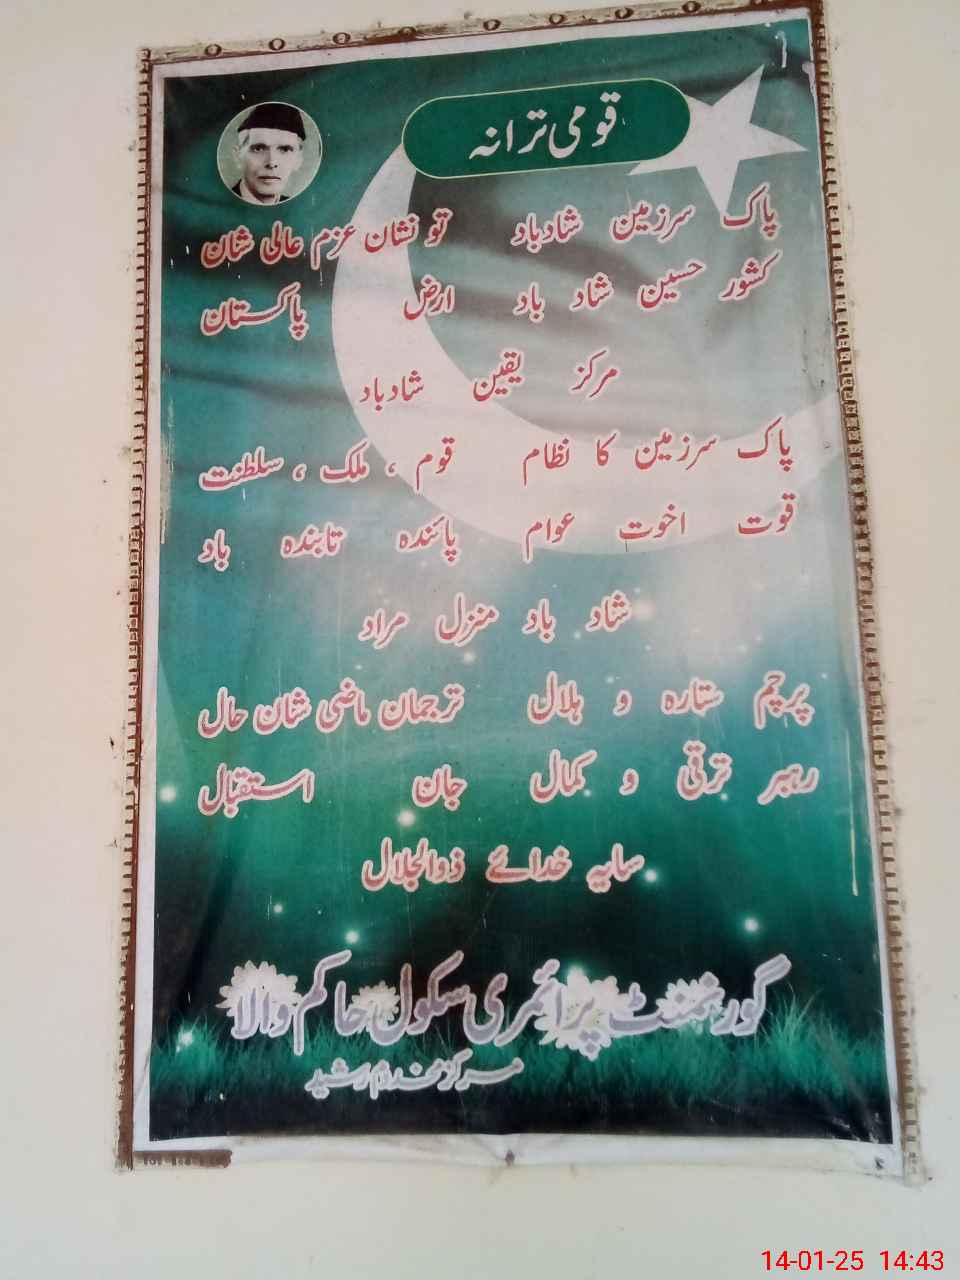 قومی ترانہ
پاک سرزمین شادباد تو نشان عزم عالی شان
کشور حسین شاد باد ارض پاکستان
مرکز یقین شادباد
پاک سرزمین کا نظام قوم ، ملک ، سلطنت
قوت اخوت عوام پائندہ تابندہ باد
شاد باد منزل مراد
پرچم ستارہ و ہلال ترجمان ماضی شان حال
رہبر ترقی و کمال جان استقبال
سایہ خدائے ذوالجلال
گورنمنٹ پرائمری سکول حاکم والا
مرکز مخدوم رشید
14-01-25 14:43